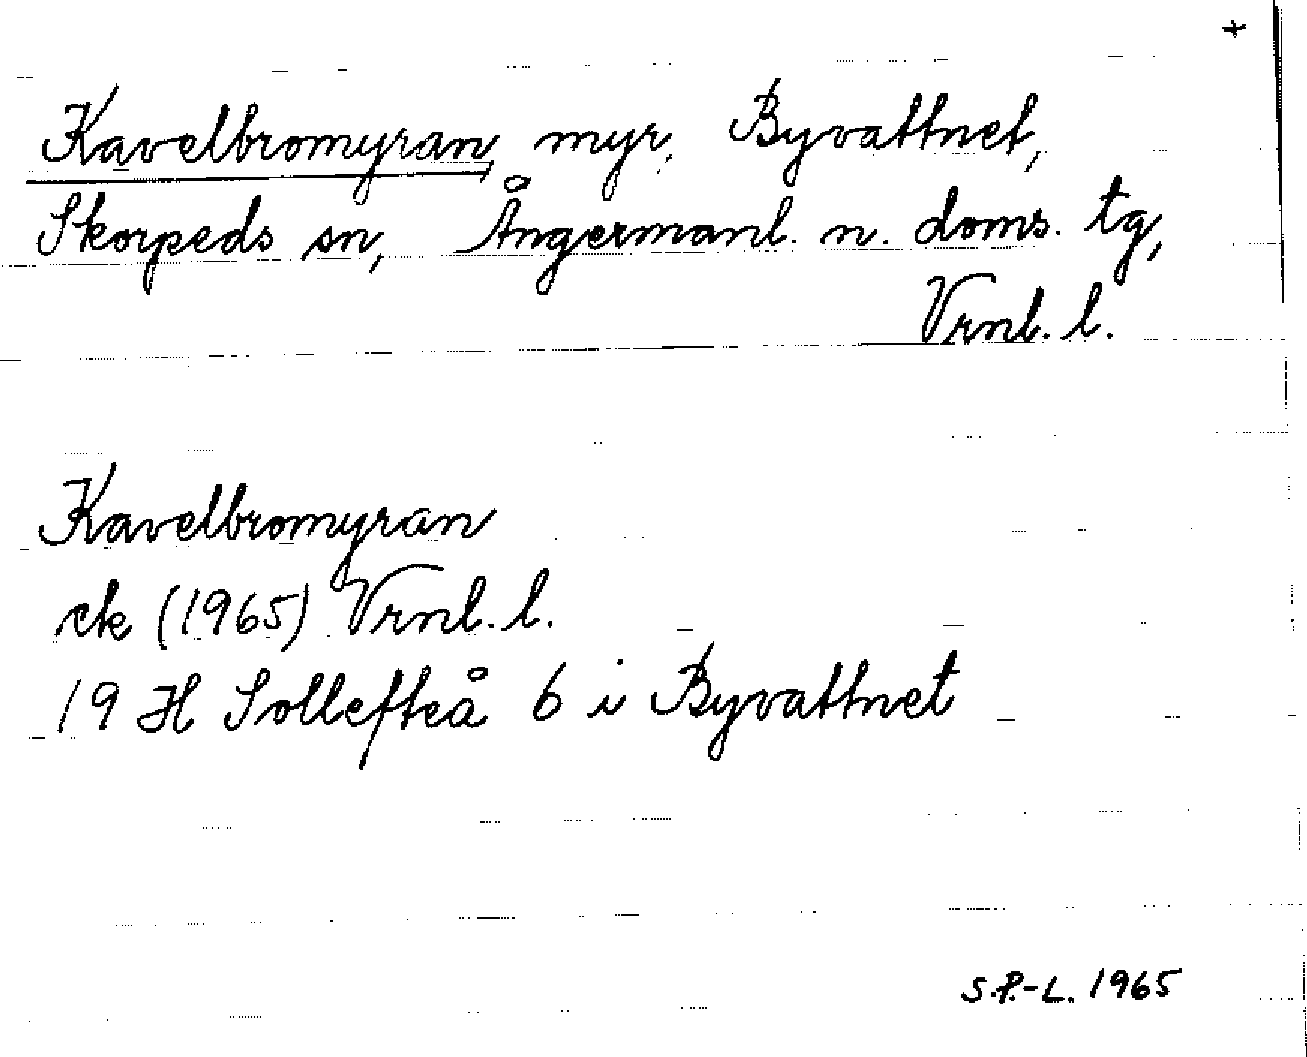 +
Kavelbromyran, myr, Byvattnet,
Skorpeds sn, Ångermanl. n. doms. tg,
Vrnl. l.
Kavelbromyran
ek (1965) Vrnl. l.
19 H Sollefteå 6 i Byvattnet
S.P.-L. 1965